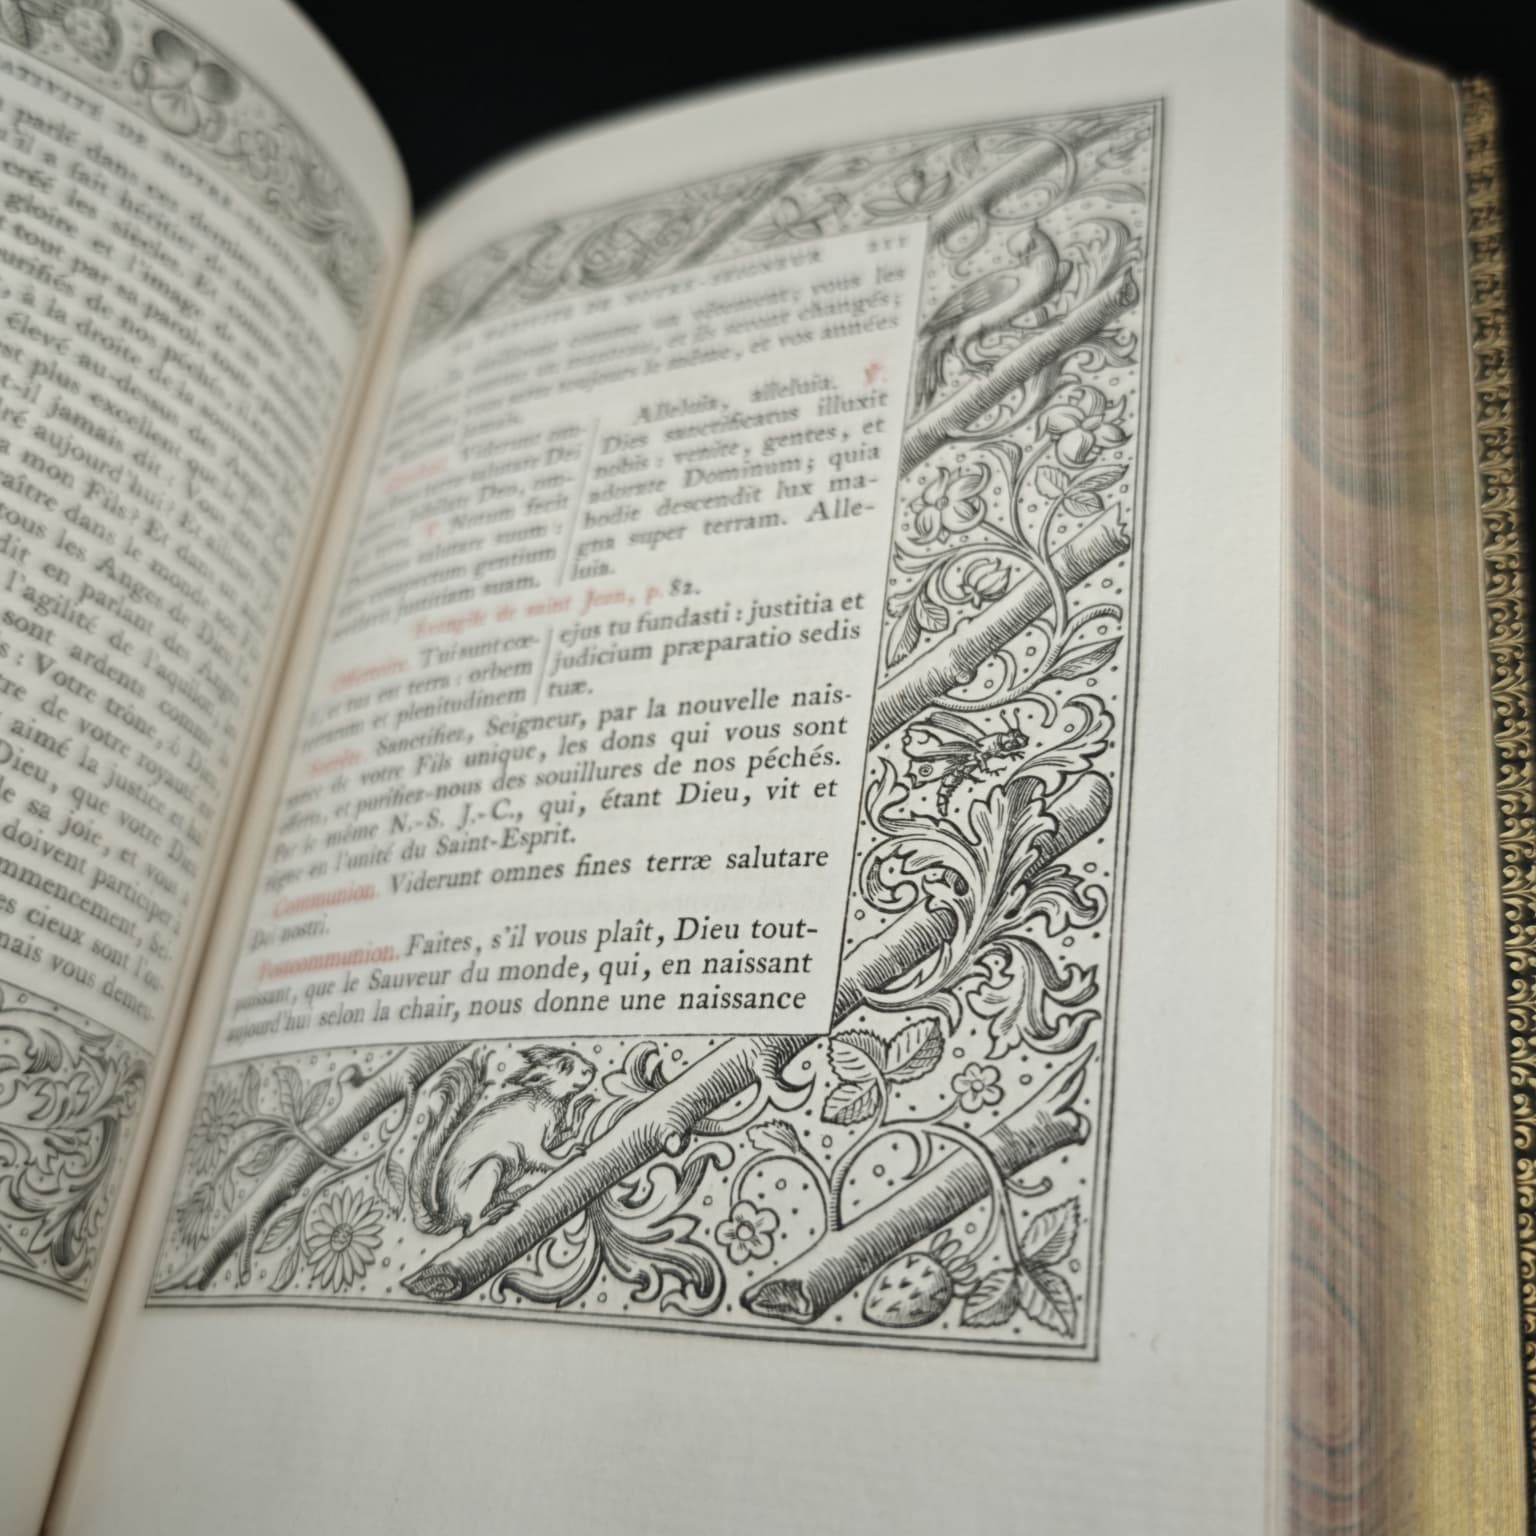 NATIVITÉ DE NOTRE-SEIGNEUR
parlé dans ces derniers temps
qu'il a fait héritier de tout
créé les siècles. Et comme
gloire et l'image de sa
tout par sa parole
purifiés de nos péchés, il
, à la droite de la souveraine
élevé au-dessus des Anges
est plus excellent que
t-il jamais dit : Vous
dré aujourd'hui? Et ailleurs
a mon Fils? Et dans
raître dans le monde
tous les Anges de Dieu l'
dit en parlant des Anges
l'agilité de l'aquilon
sont ardents comme
s : Votre trône, ô Dieu
tre de votre royauté
aimé la justice et haï
Dieu, que votre Dieu
de sa joie, et vous a
doivent participer à
mmencement, Sei-
es cieux sont l'ou-
mais vous demeu-
NATIVITÉ DE NOTRE-SEIGNEUR
comme un vêtement; vous les
comme un manteau, et ils seront changés;
vous serez toujours le même, et vos années
jamais.
Viderunt om-
salutare Dei
Deo, om-
℣. Notum fecit
salutare suum :
conspectum gentium
justitiam suam.
Alleluia, alleluia. ℣.
Dies sanctificatus illuxit
nobis : venite, gentes, et
adorate Dominum; quia
hodie descendit lux ma-
gna super terram. Alle-
luia.
Evangile de saint Jean, p. 82.
Offertoire. Tui sunt cœ-
li, et tua est terra : orbem
terrarum et plenitudinem
ejus tu fundasti : justitia et
judicium præparatio sedis
tuæ.
Secrète. Sanctifiez, Seigneur, par la nouvelle nais-
sance de votre Fils unique, les dons qui vous sont
offerts, et purifiez-nous des souillures de nos péchés.
Par le même N.-S. J.-C., qui, étant Dieu, vit et
règne en l'unité du Saint-Esprit.
Communion. Viderunt omnes fines terræ salutare
Dei nostri.
Postcommunion. Faites, s'il vous plaît, Dieu tout-
puissant, que le Sauveur du monde, qui, en naissant
aujourd'hui selon la chair, nous donne une naissance